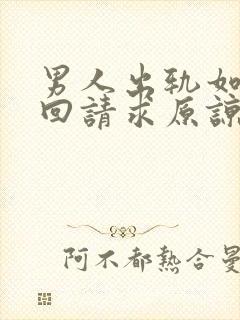 男人出轨如
回請求原諒
阿不都熱合曼